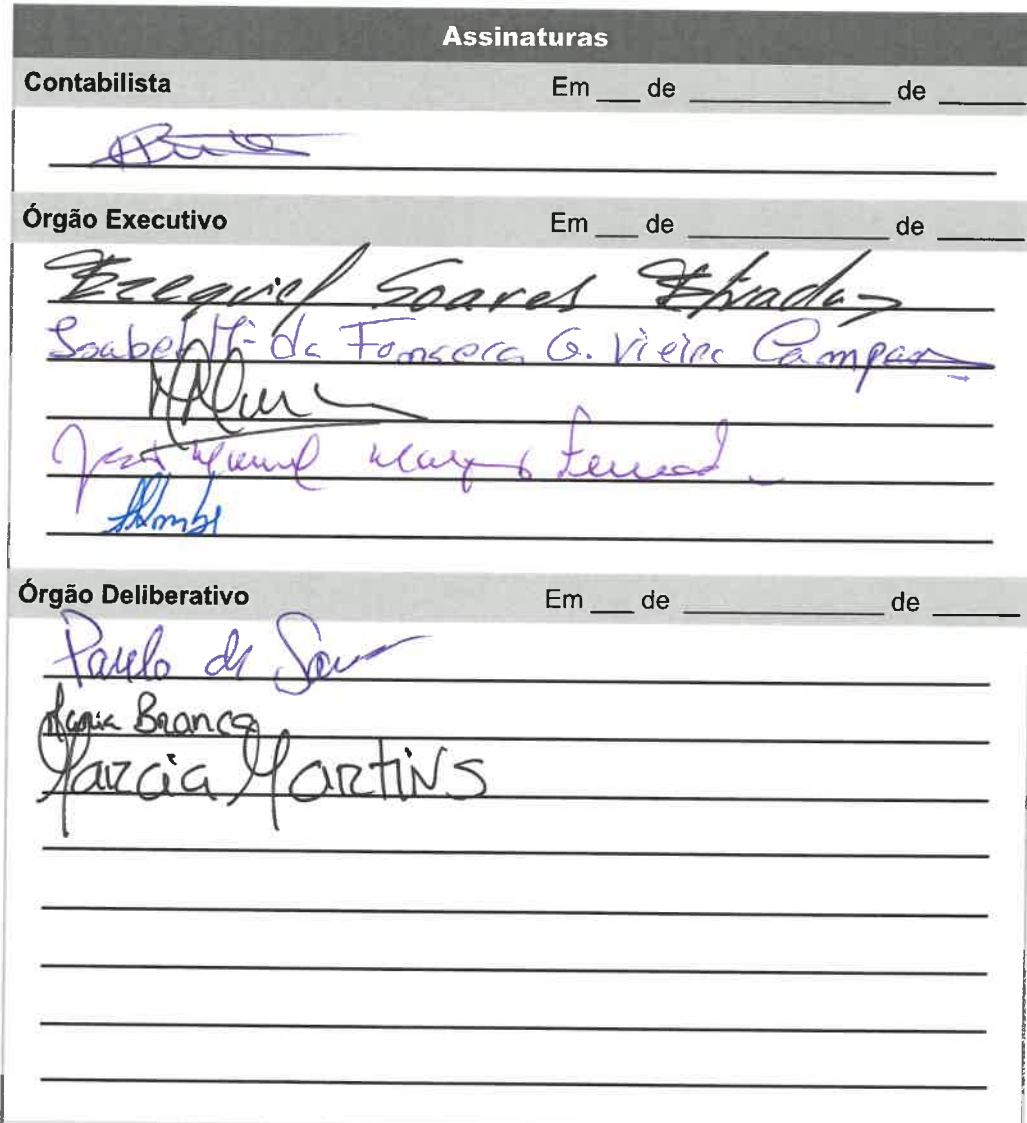 Assinaturas
Contabilista Em ___ de ______________ de ______
Órgão Executivo Em ___ de ______________ de ______
Ezequiel Soares Estrada
Isabel Mª da Fonseca G. Vieira Campas
José Manuel
Órgão Deliberativo Em ___ de ______________ de ______
Paulo de
Maria Branca
Marcia Martins